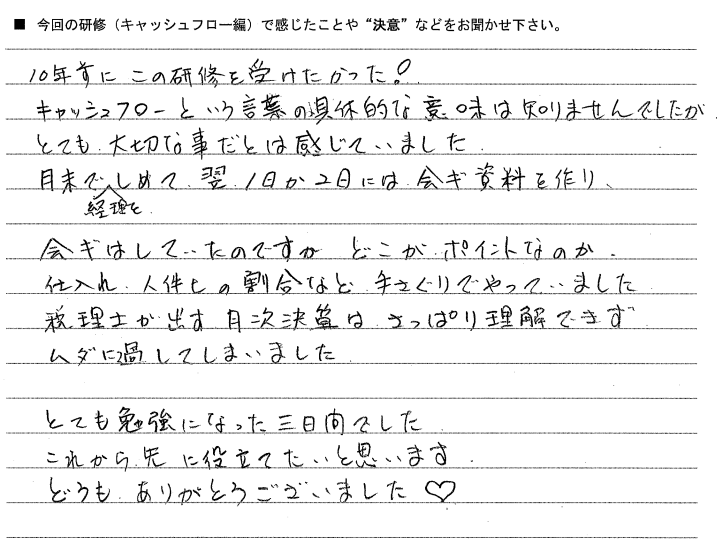 ■ 今回の研修（キャッシュフロー編）で感じたことや“決意”などをお聞かせ下さい。
10年前に この研修を受けたかった！
キャッシュフローという言葉の具体的な意味は知りませんでしたが、
とても大切な事だとは感じていました
月末で経理をしめて、翌、1日か2日には会ギ資料を作り、
会ギはしていたのですが どこがポイントなのか、
仕入れ、人件ヒの割合など 手さぐりでやっていました
税理士が出す月次決算は さっぱり理解できず
ムダに過してしまいました
とても勉強になった三日間でした
これから先に役立てたいと思います
どうもありがとうございました♡